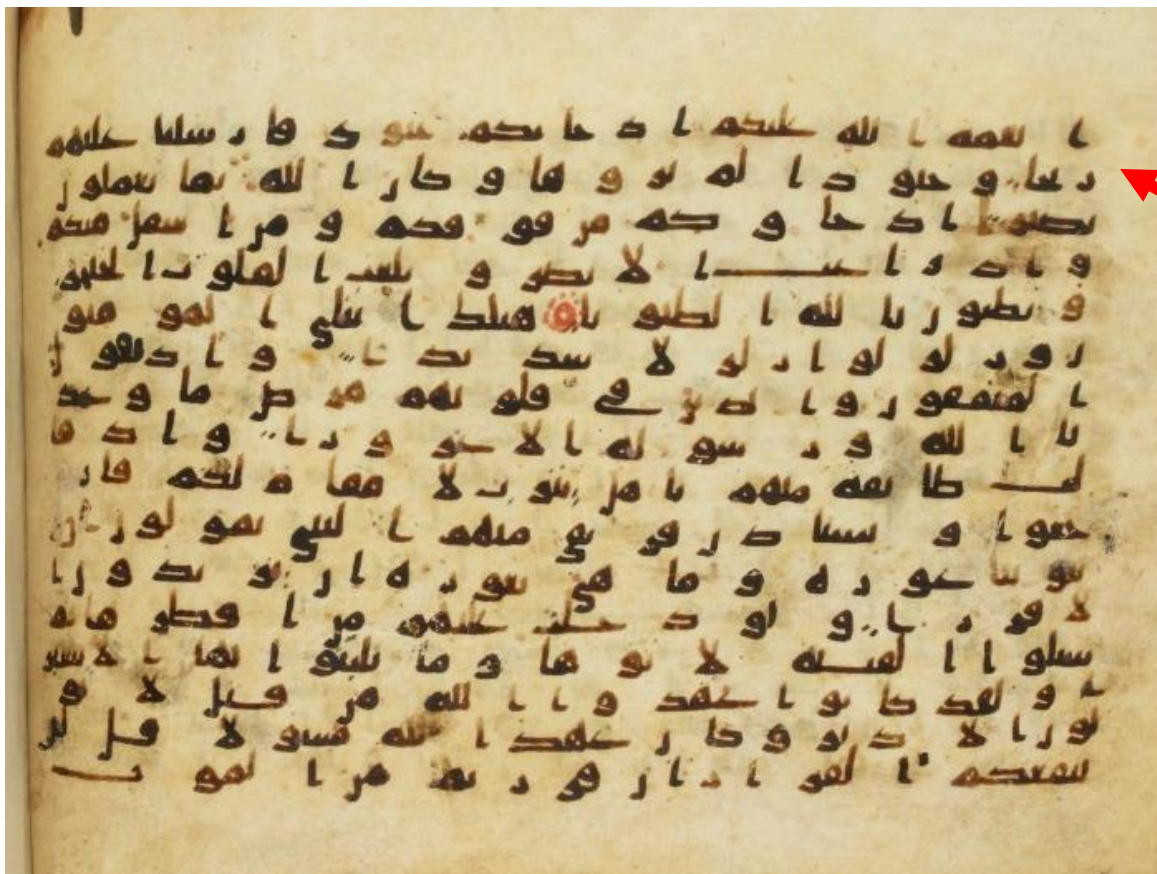 ا نعمه الله عليكم اذ جاتكم جنود فارسلنا عليهم
ريحا وجنودا لم تروها وكان الله بما تعملون
بصيرا اذ جاوكم من فوقكم ومن اسفل منكم
واذ زاغت الابصر وبلغت القلوب الحناجر
وتظنون بالله الظنونا هنالك ابتلي المومنو
ن وزلزلوا زلزالا شديدا واذ يقول
المنفقون والذين في قلوبهم مرض ما وعد
نا الله ورسوله الا غرورا واذ قا
لت طائفه منهم ياهل يثرب لا مقام لكم فار
جعوا ويستاذن فريق منهم النبي يقولون ان
بيوتنا عوره وما هي بعوره ان يريدون ا
لا فرارا ولو دخلت عليهم من اقطرها ثم
سئلوا الفتنه لاتوها وما تلبثوا بها الا يسير
ا ولقد كانوا عهدوا الله من قبل لا يو
لون الادبر وكان عهد الله مسولا قل لن
ينفعكم الفرار ان فررتم من الموت